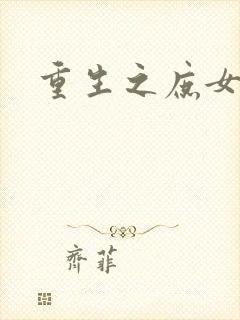 重生之庶女
齊菲